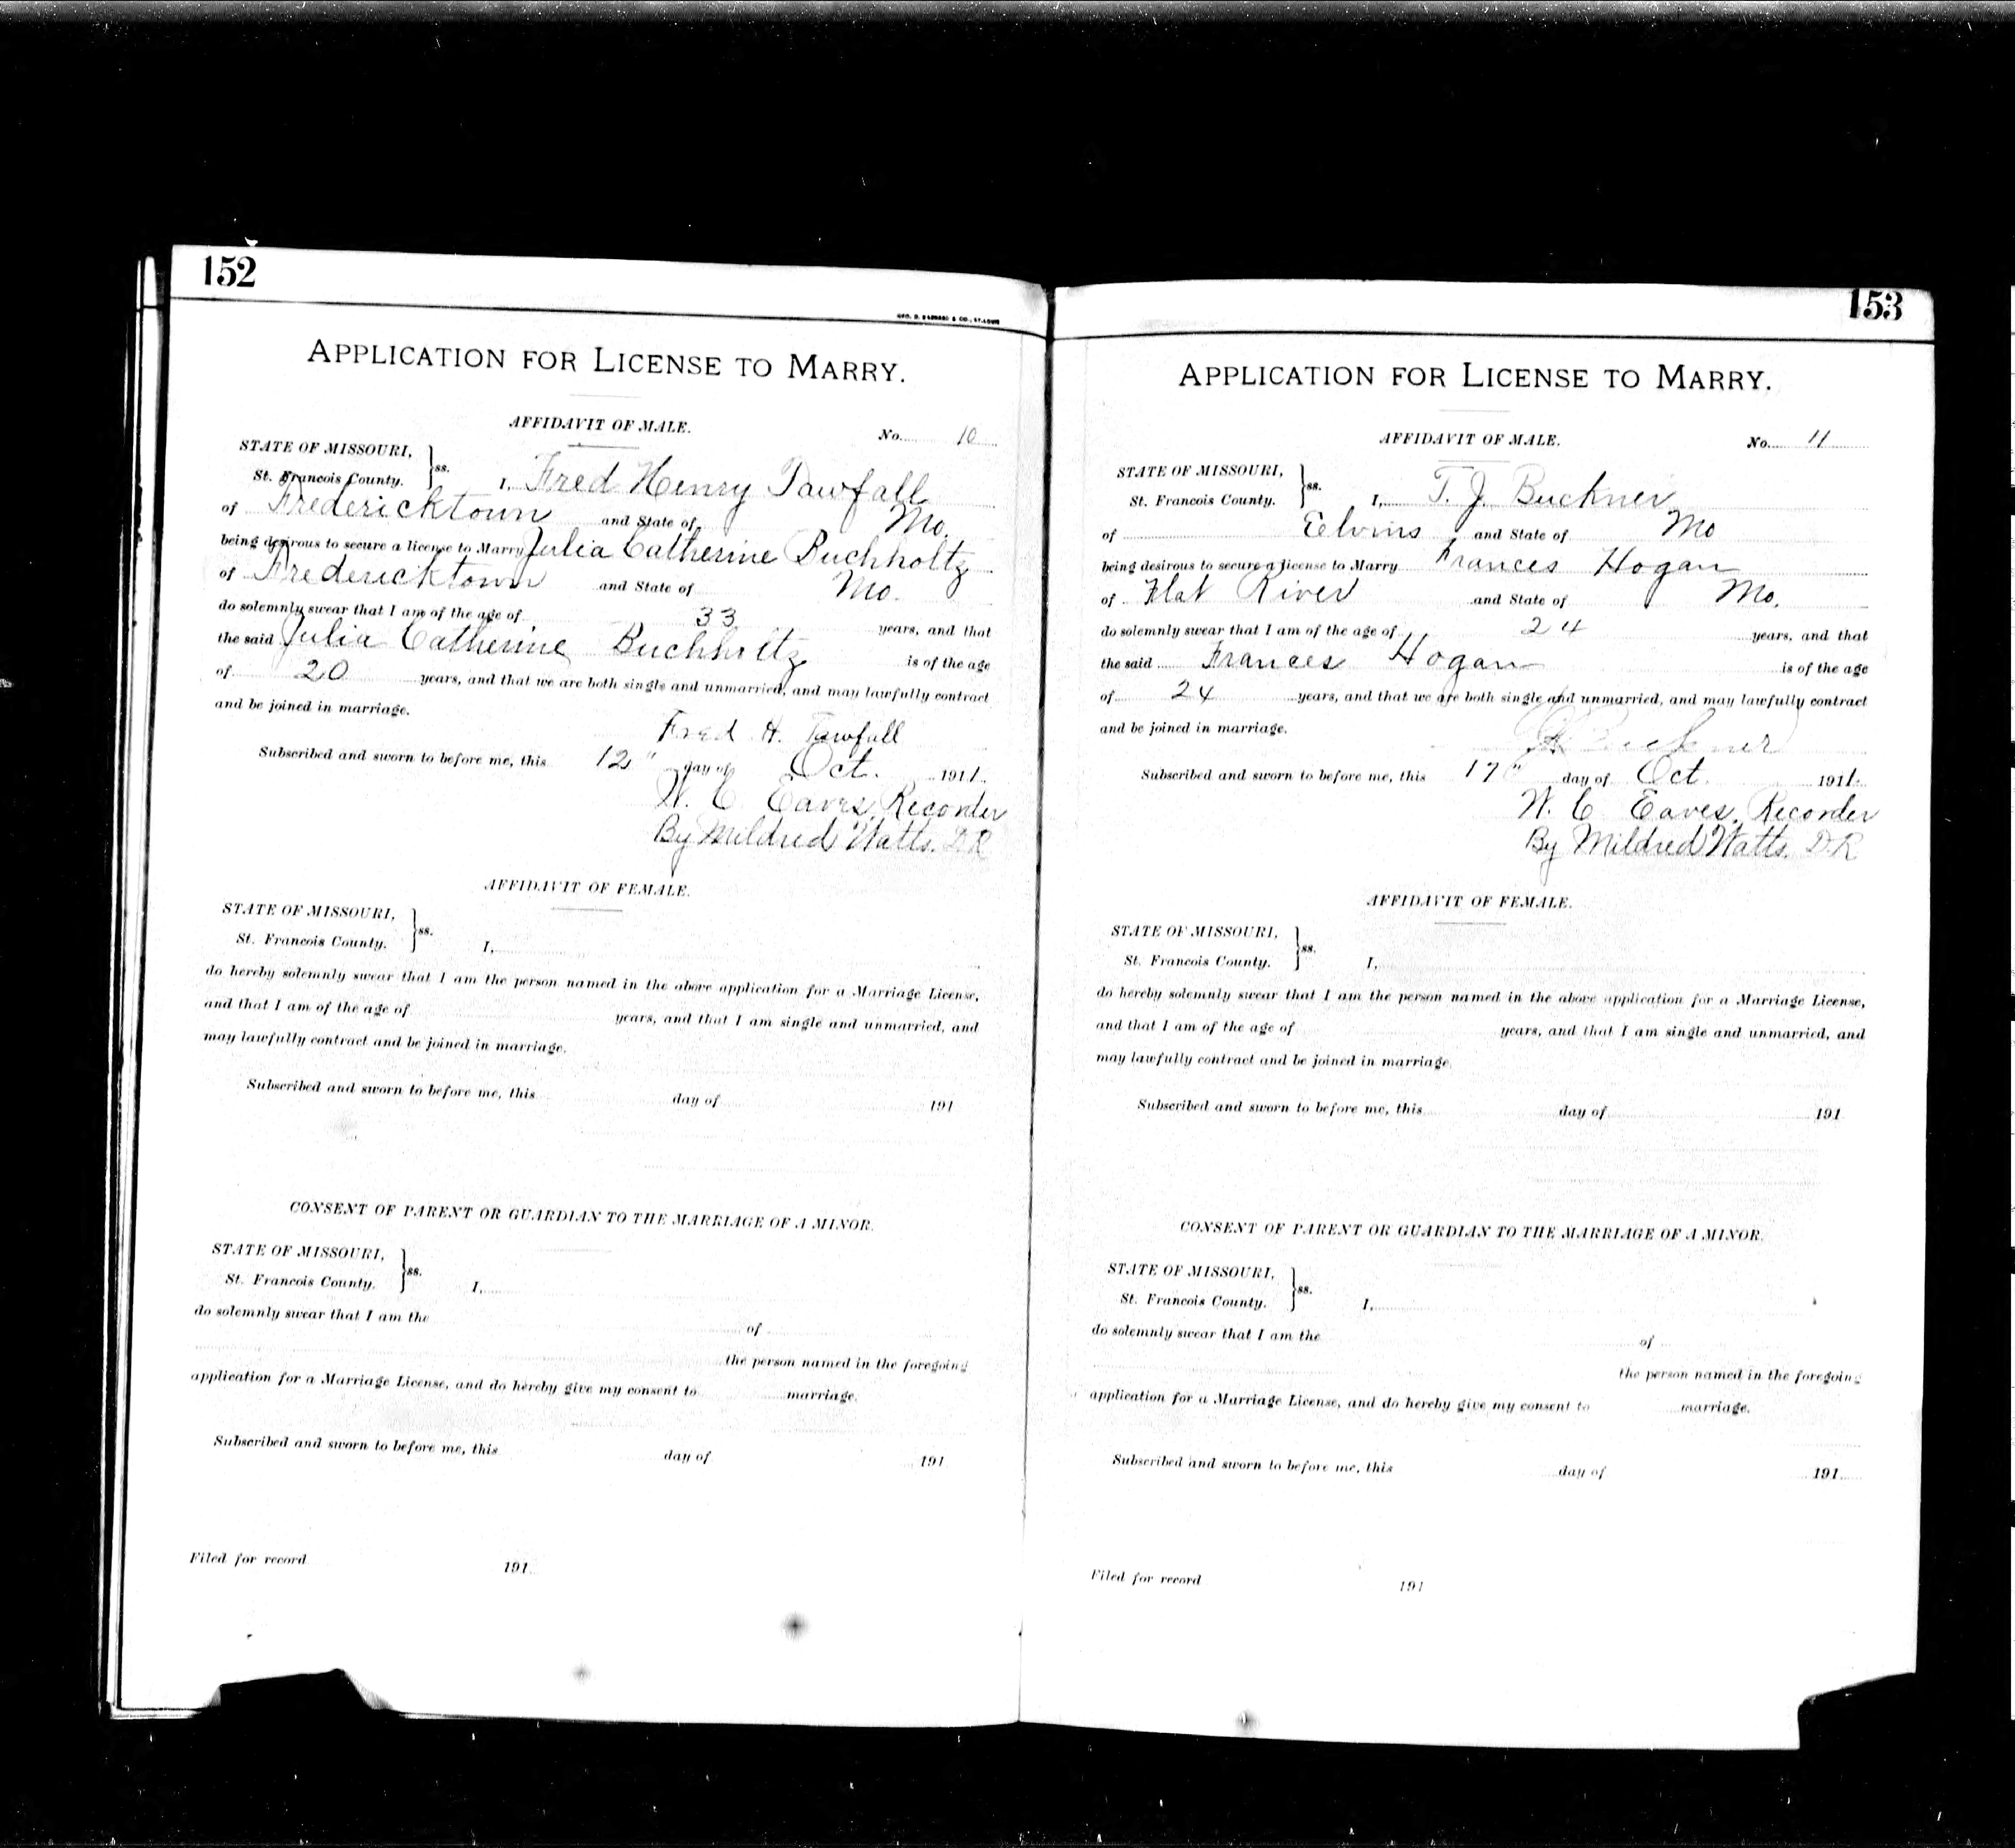 152
GEO. D. BARNARD & CO., ST. LOUIS
APPLICATION FOR LICENSE TO MARRY.
AFFIDAVIT OF MALE.
No. 10
STATE OF MISSOURI,
St. Francois County. ss. I, Fred Henry Tawfall
of Fredericktown and State of Mo.
being desirous to secure a license to Marry Julia Catherine Buchholtz
of Fredericktown and State of Mo.
do solemnly swear that I am of the age of 33 years, and that
the said Julia Catherine Buchholtz is of the age
of 20 years, and that we are both single and unmarried, and may lawfully contract
and be joined in marriage.
Fred H. Tawfall
Subscribed and sworn to before me, this 12" day of Oct. 1911.
W. C. Eaves, Recorder
By Mildred Watts. D.R
AFFIDAVIT OF FEMALE.
STATE OF MISSOURI,
St. Francois County. ss. I,
do hereby solemnly swear that I am the person named in the above application for a Marriage License,
and that I am of the age of years, and that I am single and unmarried, and
may lawfully contract and be joined in marriage.
Subscribed and sworn to before me, this day of 191
CONSENT OF PARENT OR GUARDIAN TO THE MARRIAGE OF A MINOR.
STATE OF MISSOURI,
St. Francois County. ss. I,
do solemnly swear that I am the of
the person named in the foregoing
application for a Marriage License, and do hereby give my consent to marriage.
Subscribed and sworn to before me, this day of 191
Filed for record 191
153
APPLICATION FOR LICENSE TO MARRY.
AFFIDAVIT OF MALE.
No. 11
STATE OF MISSOURI,
St. Francois County. ss. I, T. J. Buckner
of Elvins and State of Mo
being desirous to secure a license to Marry Frances Hogan
of Flat River and State of Mo.
do solemnly swear that I am of the age of 24 years, and that
the said Frances Hogan is of the age
of 24 years, and that we are both single and unmarried, and may lawfully contract
and be joined in marriage.
Buckner
Subscribed and sworn to before me, this 17" day of Oct. 1911.
W. C. Eaves, Recorder
By Mildred Watts. D.R
AFFIDAVIT OF FEMALE.
STATE OF MISSOURI,
St. Francois County. ss. I,
do hereby solemnly swear that I am the person named in the above application for a Marriage License,
and that I am of the age of years, and that I am single and unmarried, and
may lawfully contract and be joined in marriage.
Subscribed and sworn to before me, this day of 191
CONSENT OF PARENT OR GUARDIAN TO THE MARRIAGE OF A MINOR.
STATE OF MISSOURI,
St. Francois County. ss. I,
do solemnly swear that I am the of
the person named in the foregoing
application for a Marriage License, and do hereby give my consent to marriage.
Subscribed and sworn to before me, this day of 191
Filed for record 191